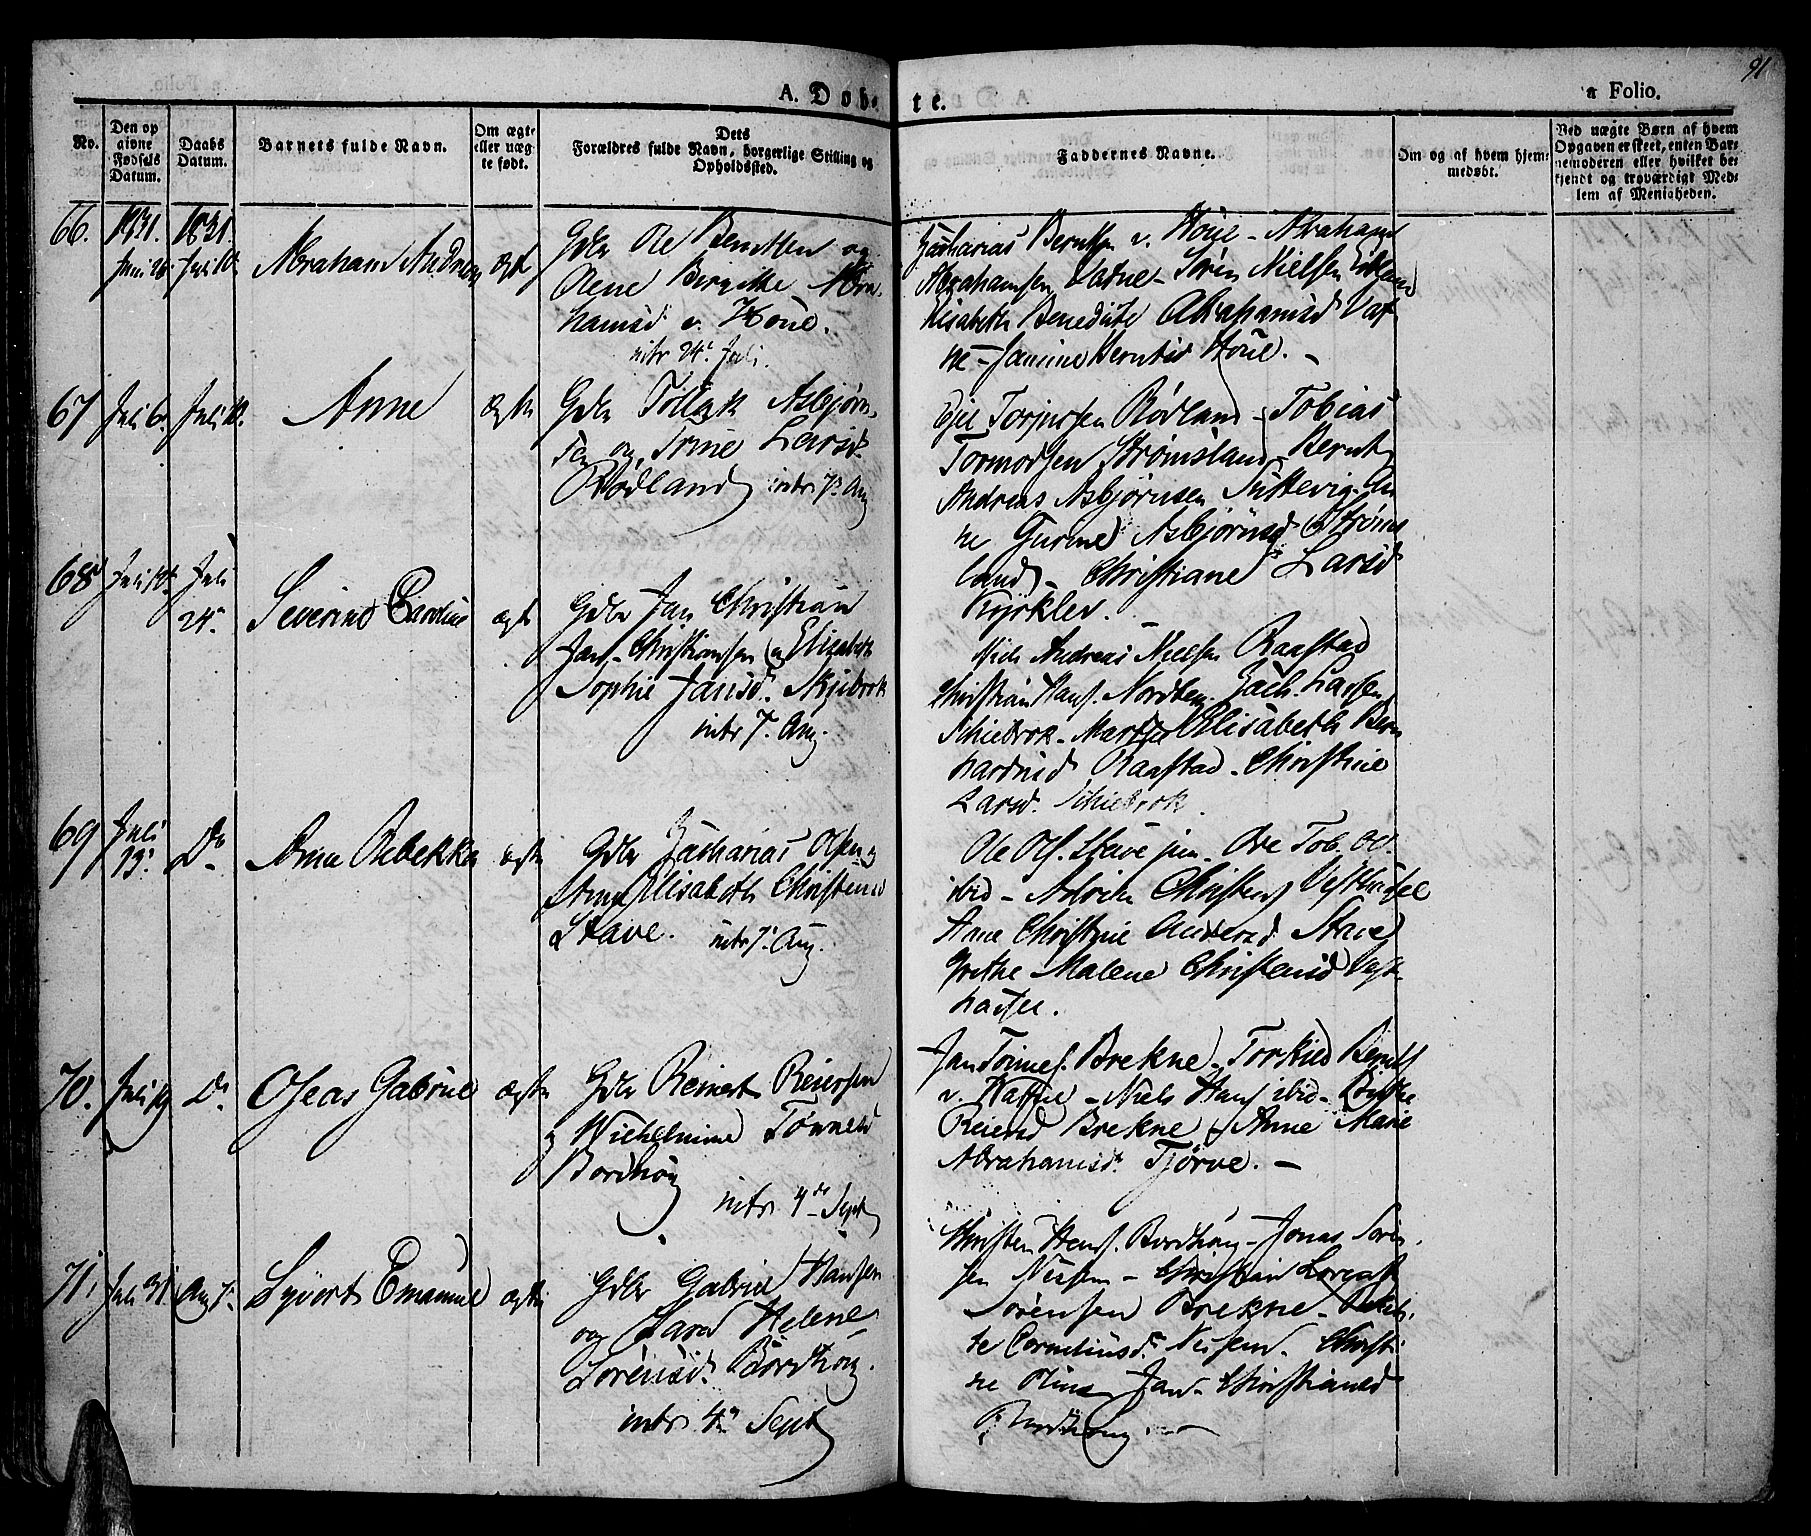 91
A. Døbte.
a Folio.
No.
Den opgivne Fødsels Datum.
Daabs Datum.
Barnets fulde Navn.
Om ægte eller uægte født.
Dets Forældres fulde Navn, borgerlige Stilling og Opholdssted.
Faddernes Navne.
Om og af hvem hjemmedøbt.
Ved uægte Børn af hvem Opgaven er skeet, enten Barnemoderen eller hvilket bekjendt og troværdigt Medlem af Menigheden.
66.
1831.
Juni 26.
1831.
Juli 10.
Abraham Andreas
ægte
Gdbr Ole Berntsen og
Olene Bergitte Abra
hamsd v. Houe.
intr 24. Juli.
Zacharias Berntsen v. Houe - Abraham
Abrahamsen Vatne - Sören Nielsen
Elisabeth Benedicte Abrahamsd Vat
ne - Janine Berntsd Houe. -
67
Juli 6.
Juli 10.
Anne
ægte
Gdbr Tollak Asbjørn
sen og Trine Larsd
Rödland intr 7. Aug
Torjusen Rödland - Tobias
Tormodsen Strömsland - Bernt
Andreas Asbjørnsen - An
ne Gurine Asbjørnsd Ströms
land - Christiane Larsd
68
Juli
Juli
24.
Severine Caroline
ægte
Gdbr Jan Christian
Jan-Christiansen og Elisabeth
Sophie Jansd. Skjebrok
intr 7. Aug.
Andreas Nielsen Raastad
Christian Hans. Zach. Larsen
Schiebrok - Marthe Elisabeth Bern
hardsd Raastad - Christine
Larsd. Schiebrok.
69
Juli
13.
Do
Anne Rebekka
ægte
Gdbr Zacharias Olsen og
Anne Elisabeth Christensd
Stave. intr 7. Aug.
Ole Ols. Stave jun. Ove Tob. Ols.
ibid - Christens. Vesthasel
Anne Christine Andersd Stave
Grethe Malene Christensd Vest
hasel.
70.
Juli 19
Do
Oseas Gabriel
ægte
Gdbr Reinert Reiersen
og Wilhelmine Tønnesd
Bordhoug
intr 4de Sept
Jan Tönnes. Brekne - Torkild Bernts
v. - Niels Hans ibid -
Reiersd Brekne - Anne Marie
Abrahamsd. Tjørve. -
71.
Juli 31
Aug 7.
Syvert Emanuel
ægte
Gdbr Gabriel Hansen
og Sara Helene
Sörensd. Bordhoug.
intr 4. Sept
Christen Hans. Bordhoug - Jonas Sören
sen - Christian
Sörensen Brekne -
te Corneliusd. - Christi
ne Jan-Christiansd
Bordhoug. -